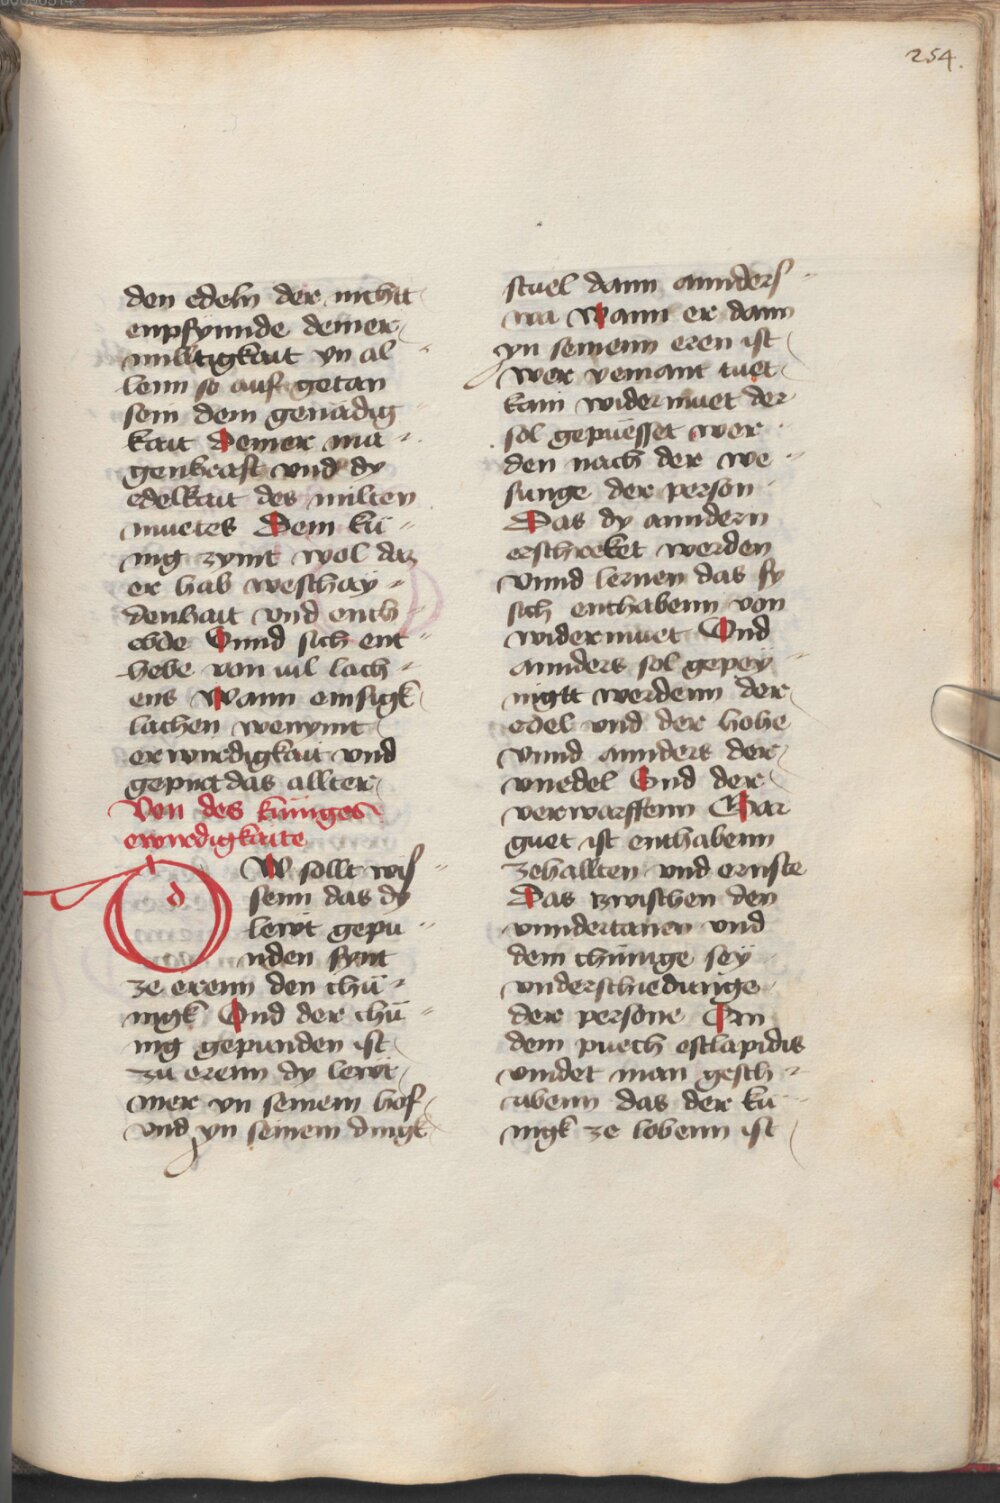 254.
den edeln der nichtt
enpfynnde deiner
milltigkait vn al
lenn so auf getan
sein dem genadig
kait Deiner ma
genkraft vnd dy
edelkait des milten
muetes Dem kü
nig zymt wol daz
er hab weschay
denhait vnd enth
ebde Vnnd sich ent
hebe von vil lach
ens Wann emsigk
lachen wenymt
erwirdigkait vnd
gepirt das allter
Von des küniges
erwirdigkaite
d W sollt wis
senn das dy
lewt gepu
nden synt
ze erenn den chü
nigk Vnd der chü
nig gepunden ist
zu erenn dy lewt
mer yn seinem hof
vnd yn seinem dingk
stuel dann annders
wa Wann er dann
yn seinenn eren ist
wer yemant tuet
kain widermuet der
sol gepuesset wer
den nach der we
sunge der person
Das dy anndern
erschreket werden
Vnnd lernen das sy
sich enthabenn von
widermuet Vnd
annders sol gepey
nigtt werdenn der
edel vnd der hohe
vnnd annders der
vnedel Vnd der
verwarffenn Gar
guet ist enthabenn
zehallten vnd ernste
Das zwischen den
vnndertanen vnd
dem chünige sey
vnderschiedunge
der persone In
dem puech esclapidis
vindet man gesch
ribenn das der kü
nigk ze lobenn ist